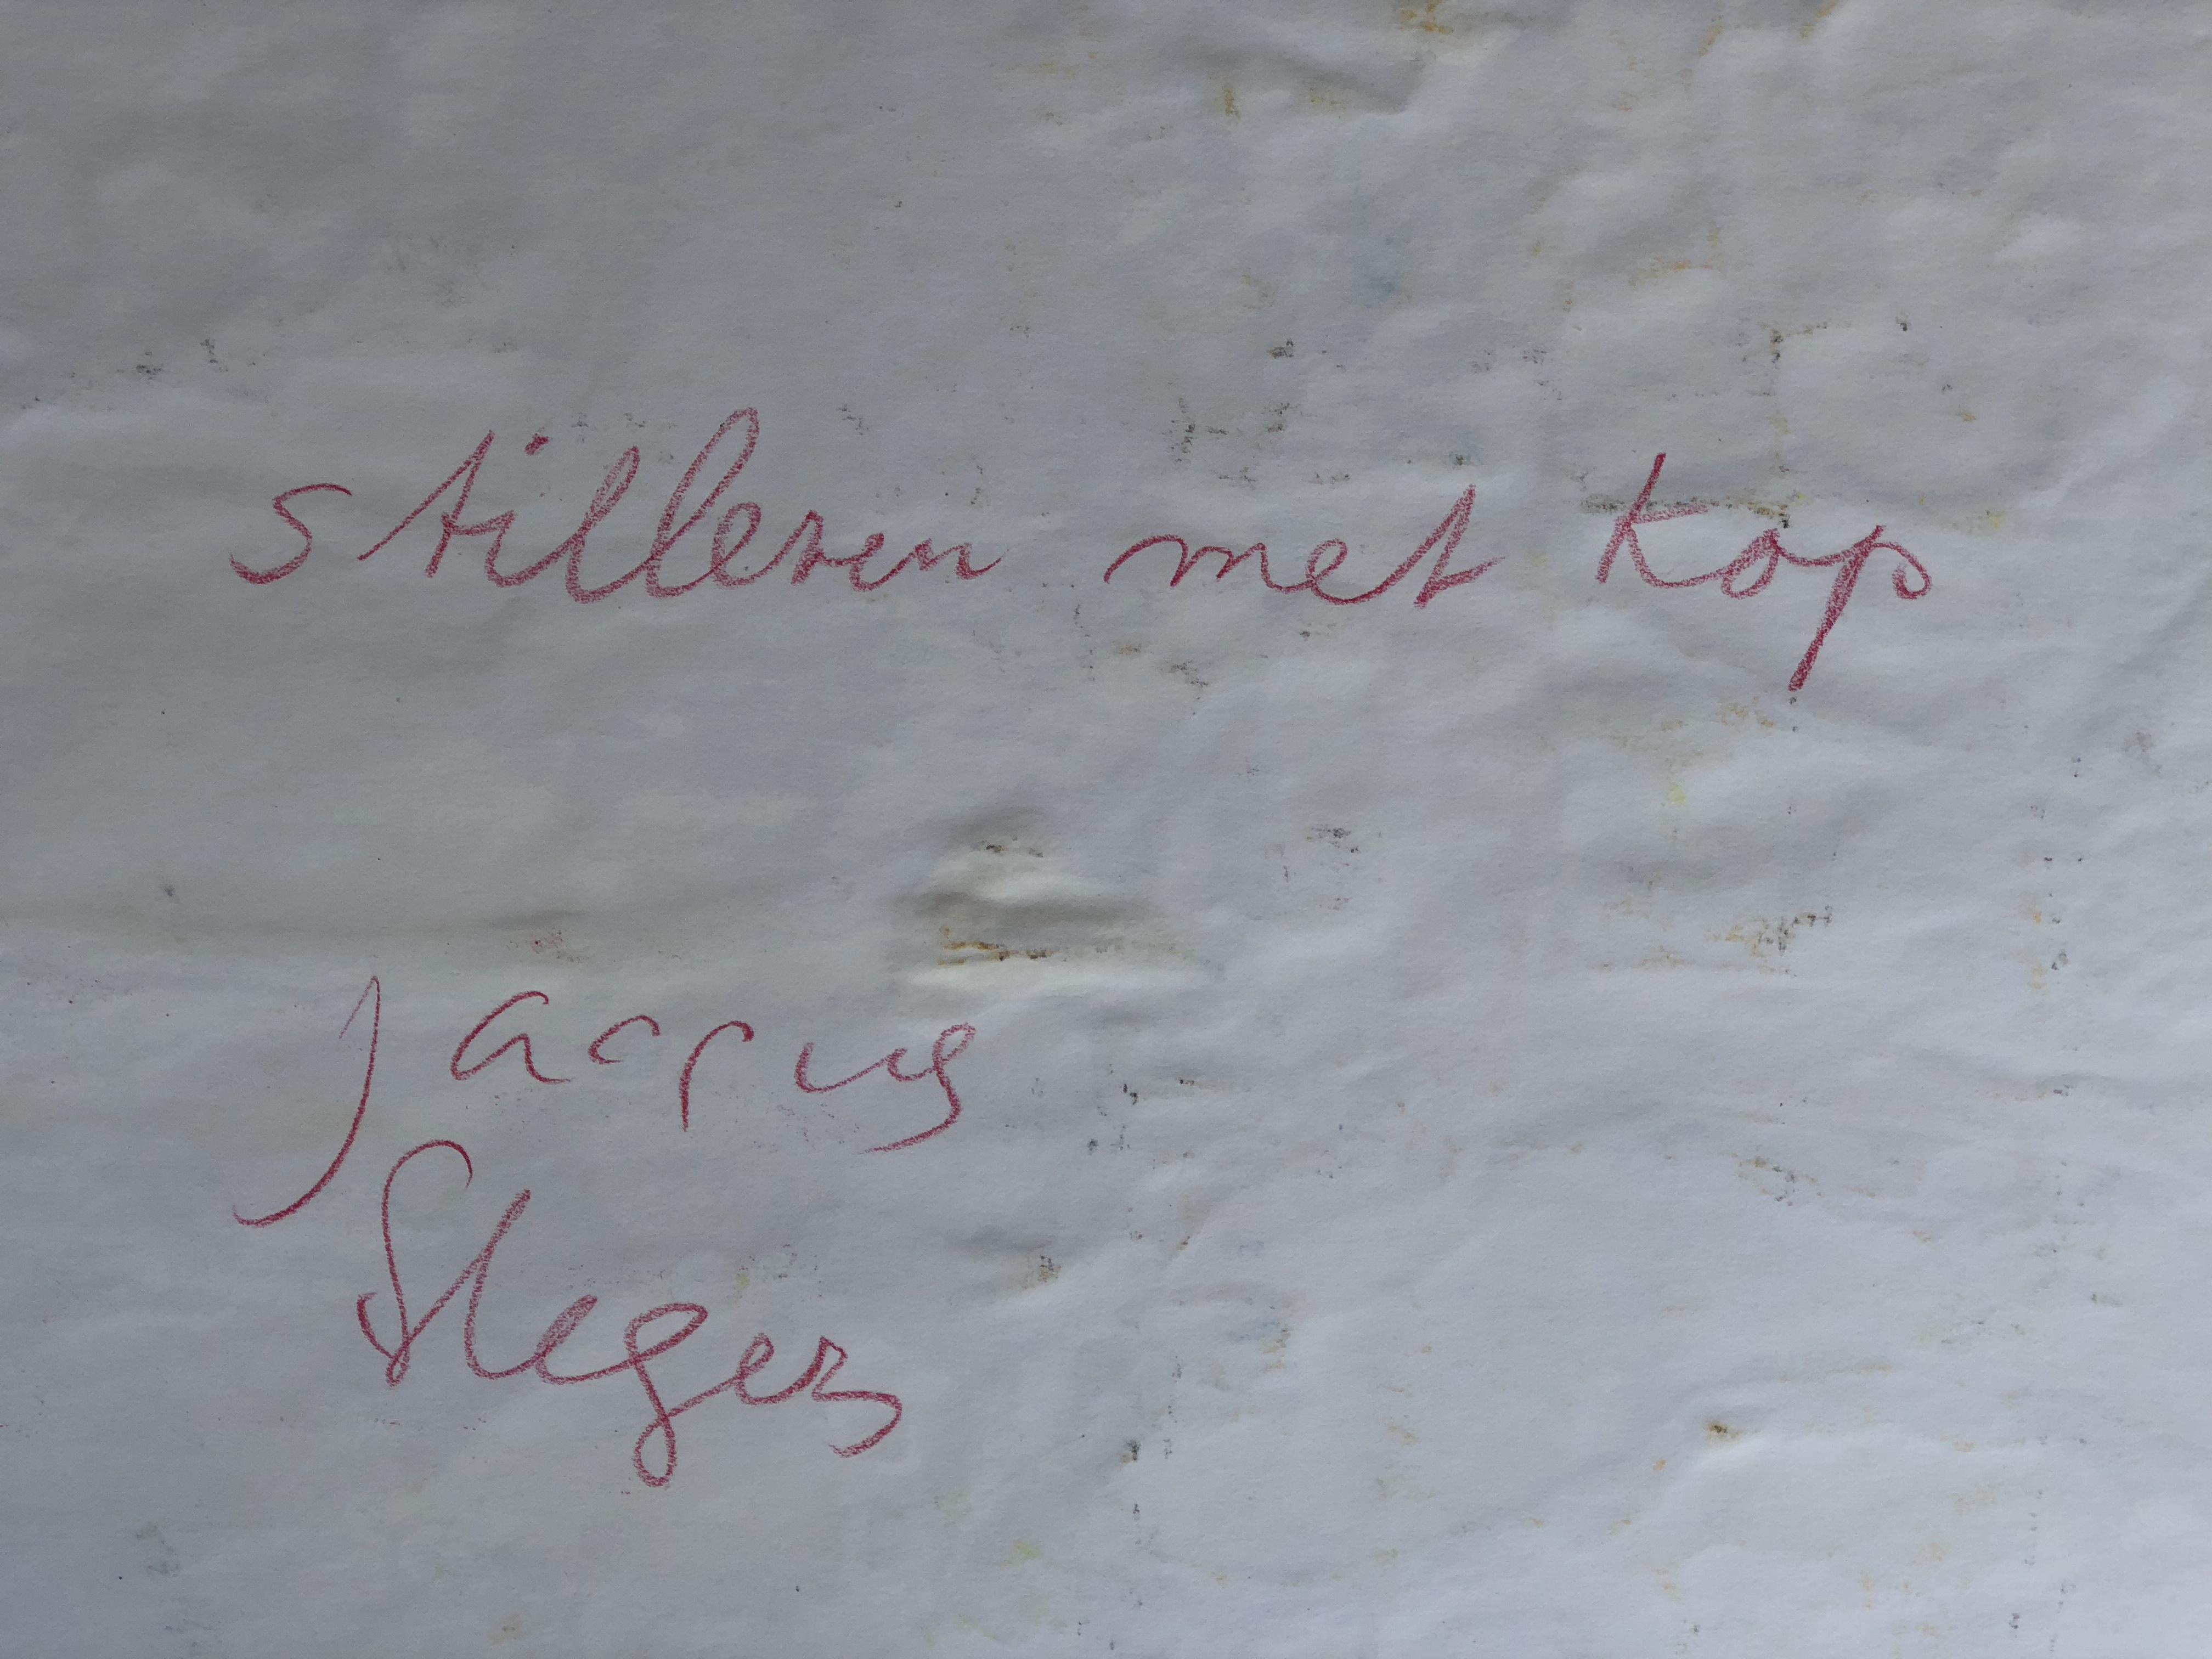 stilleven met kop
Jappug
Sleger